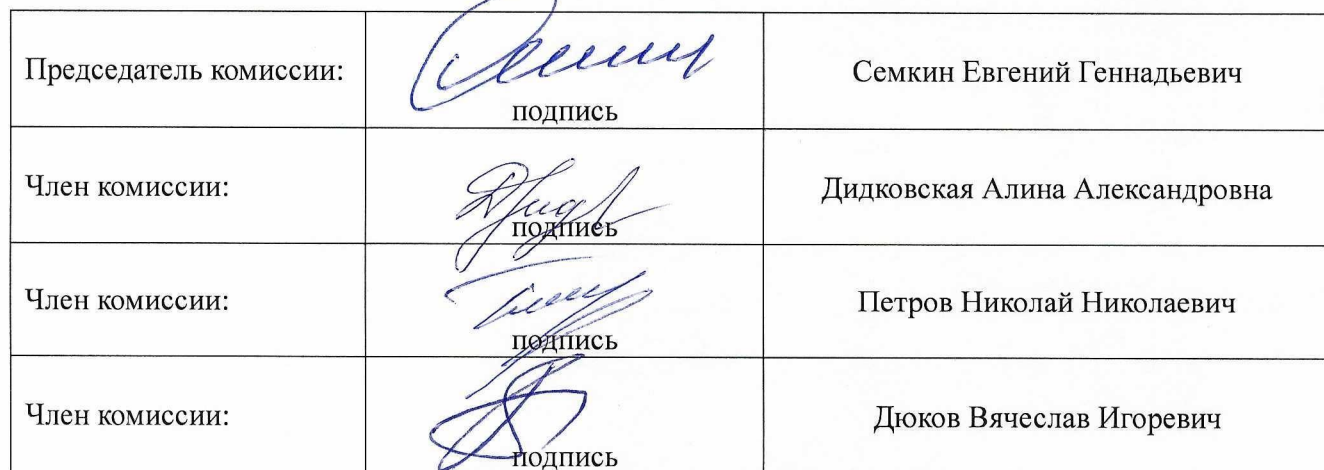 Председатель комиссии:
подпись
Семкин Евгений Геннадьевич
Член комиссии:
подпись
Дидковская Алина Александровна
Член комиссии:
подпись
Петров Николай Николаевич
Член комиссии:
подпись
Дюков Вячеслав Игоревич